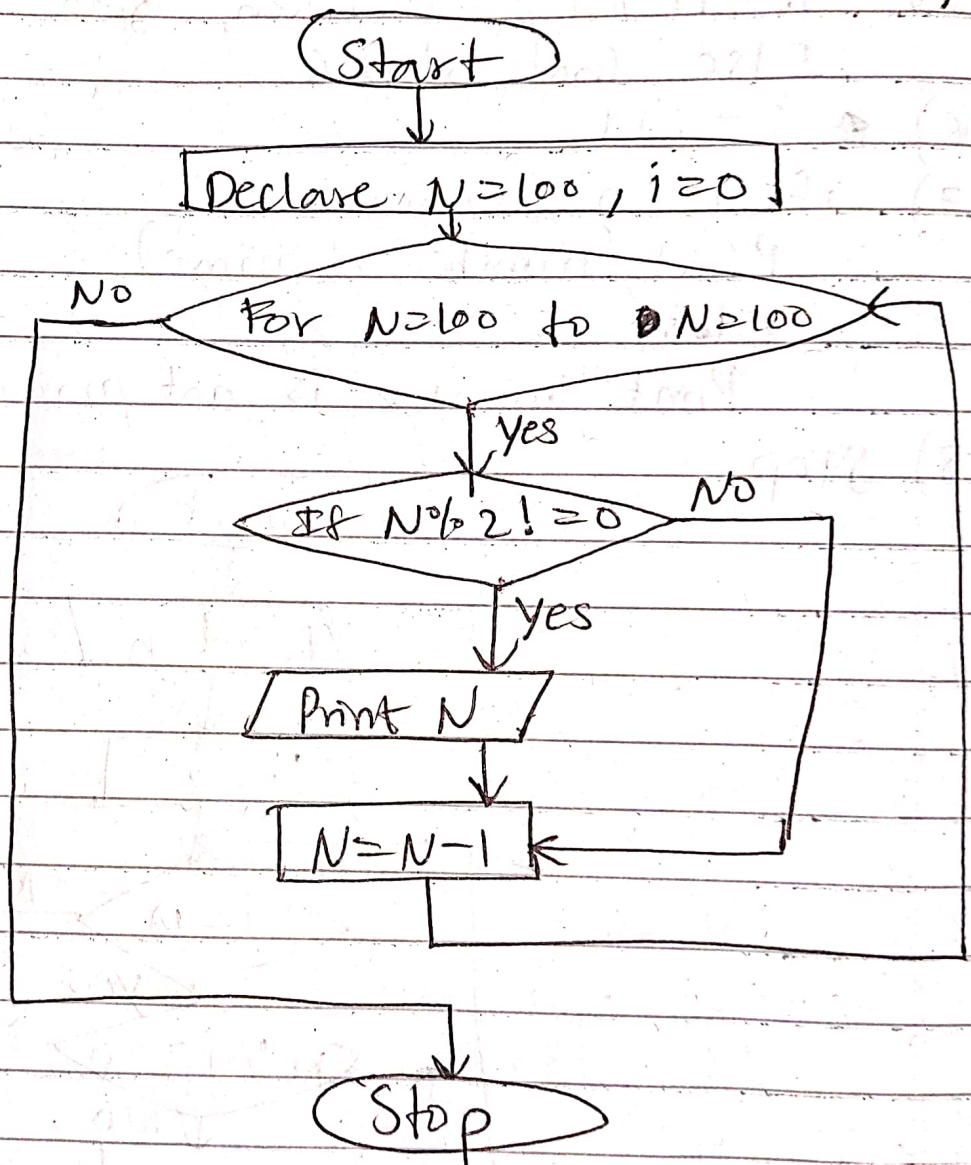 Start
Declare N=100, i=0
For N=100 to N=100
No
yes
If N%2!=0
No
yes
Print N
N=N-1
Stop